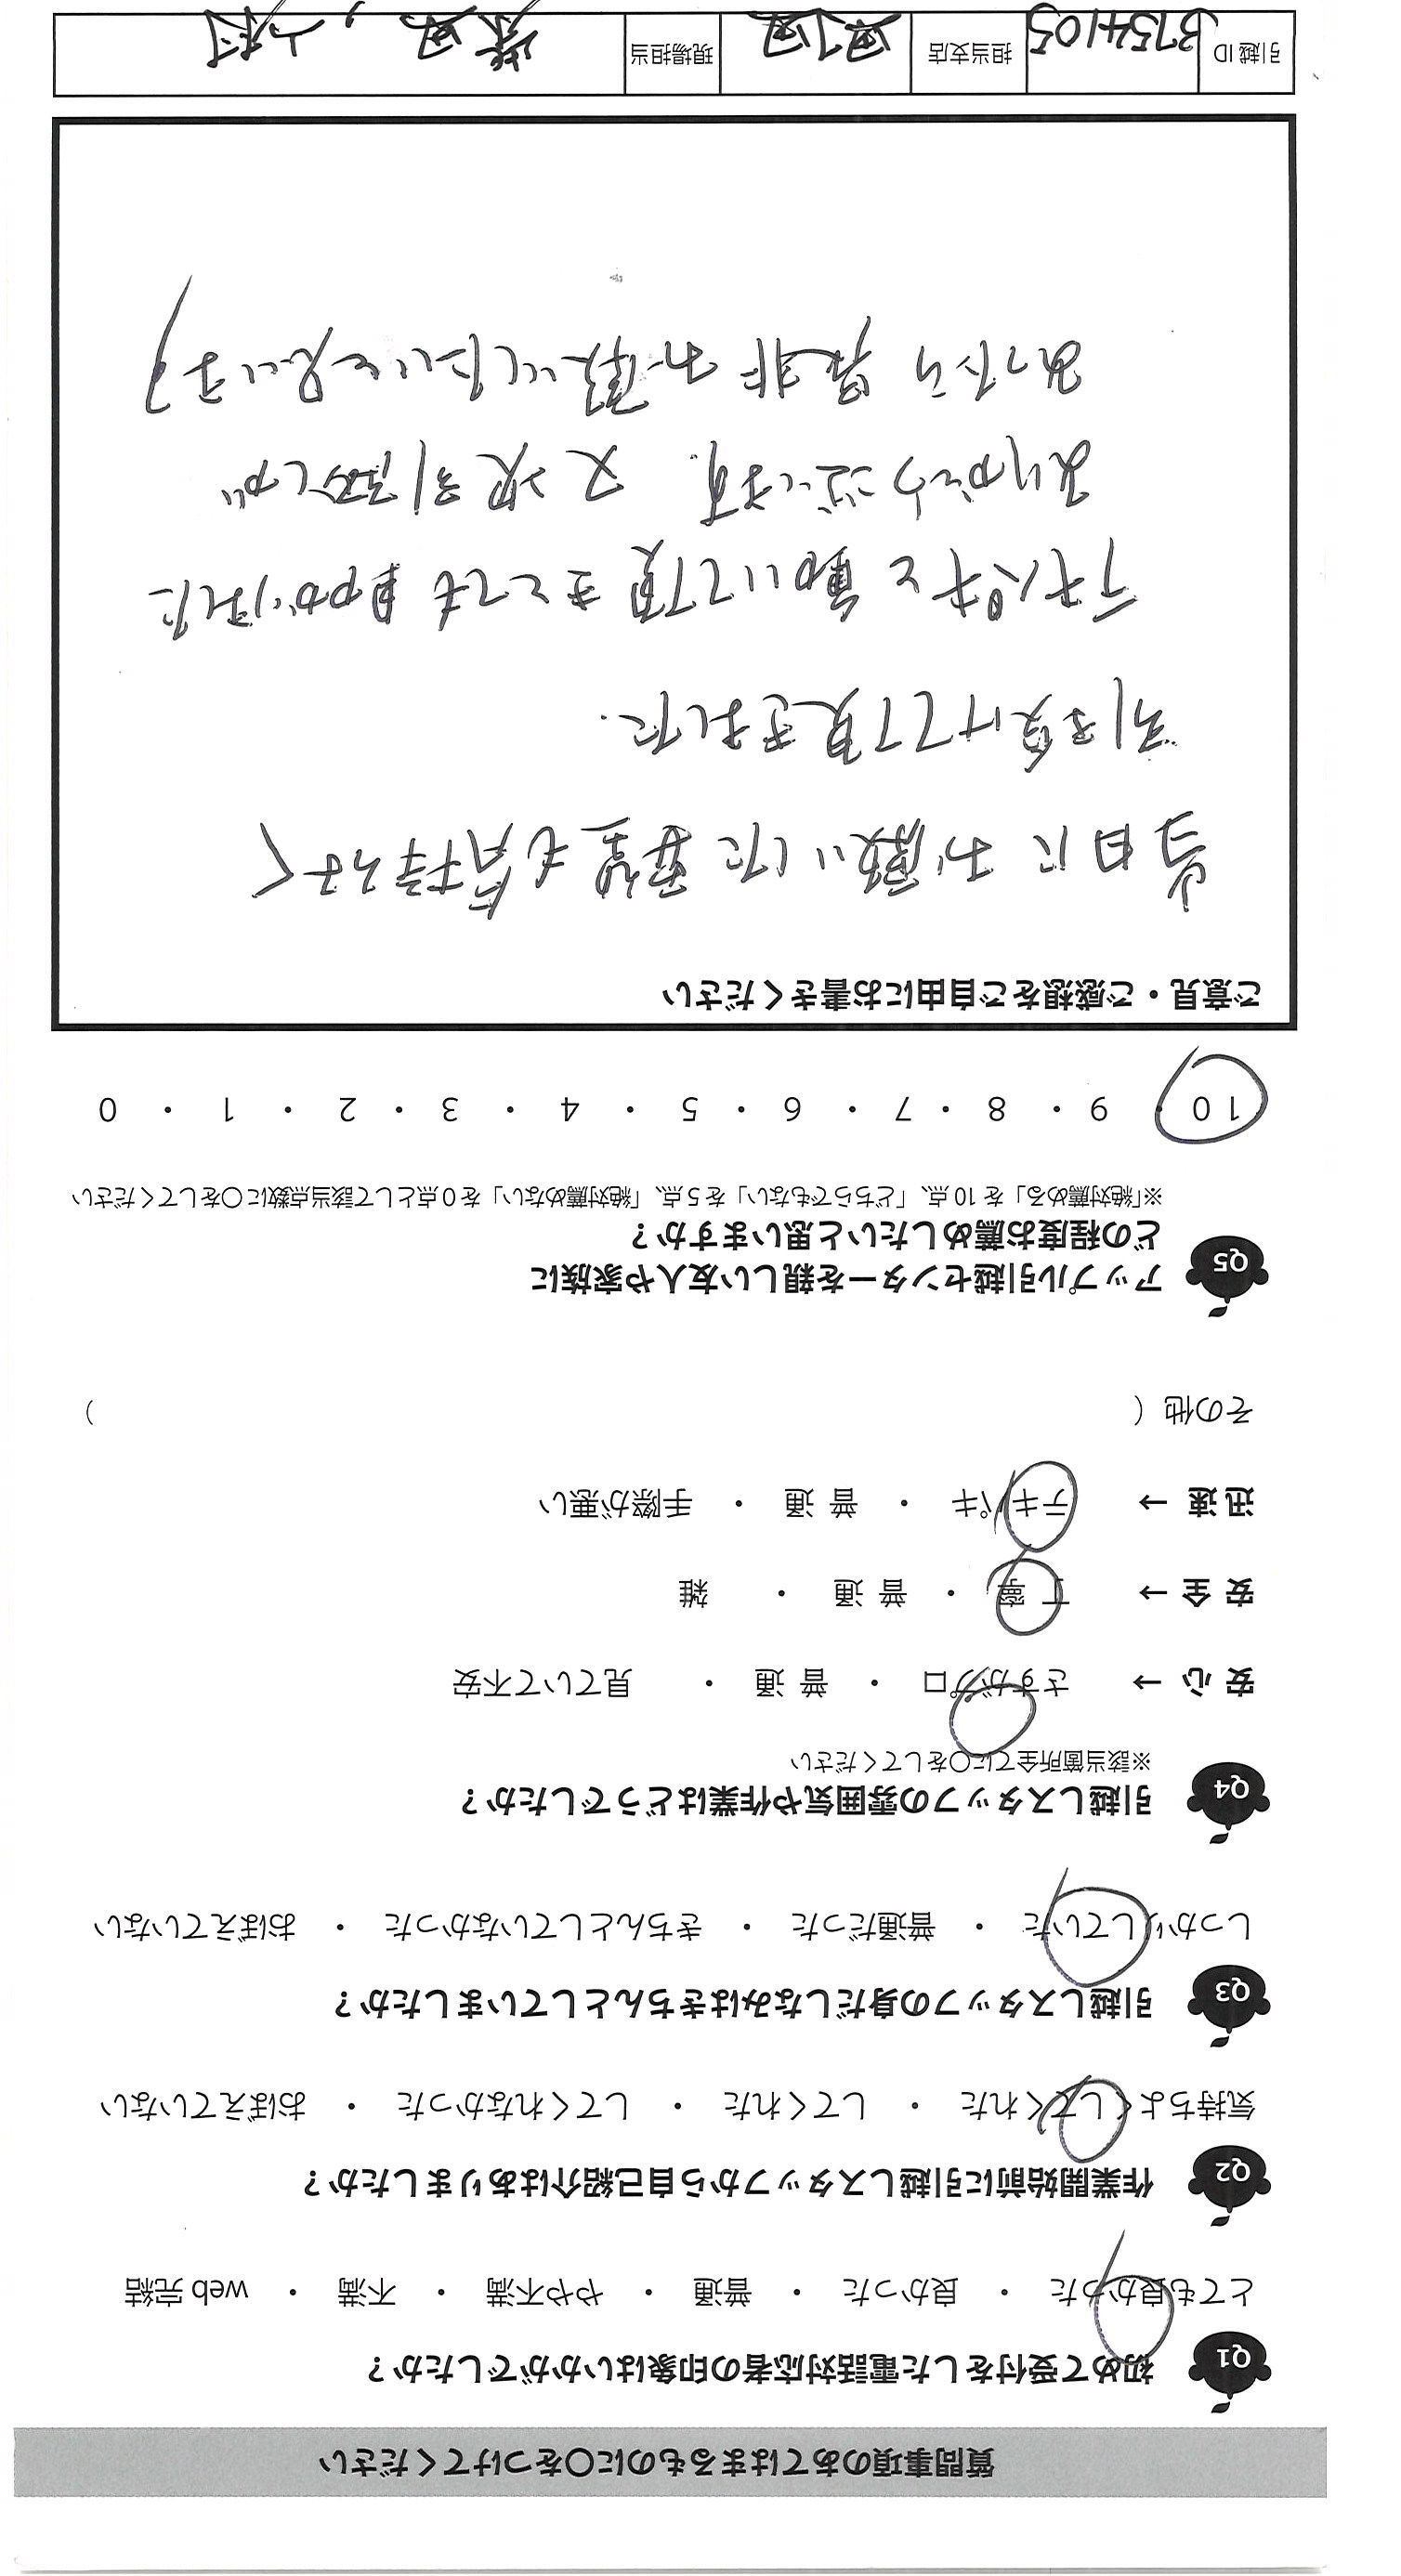 質問事項のあてはまるものに○をつけてください
Q1 初めて受付をした電話対応者の印象はいかがでしたか？
とても良かった ・ 良かった ・ 普通 ・ やや不満 ・ 不満 ・ web 完結
Q2 作業開始前に引越しスタッフから自己紹介はありましたか？
気持ちよくしてくれた ・ してくれた ・ してくれなかった ・ おぼえていない
Q3 引越しスタッフの身だしなみはきちんとしていましたか？
しっかりしていた ・ 普通だった ・ きちんとしていなかった ・ おぼえていない
Q4 引越しスタッフの雰囲気や作業はどうでしたか？
※該当箇所全てに○をしてください
安 心 → さすがプロ ・ 普 通 ・ 見ていて不安
安 全 → 丁 寧 ・ 普 通 ・ 雑
迅 速 → テキパキ ・ 普 通 ・ 手際が悪い
その他（ ）
Q5 アップル引越センターを親しい友人や家族に
どの程度お薦めしたいと思いますか？
※「絶対薦める」を 10 点、「どちらでもない」を 5 点、「絶対薦めない」を 0 点として該当点数に○をしてください
10 ・ 9 ・ 8 ・ 7 ・ 6 ・ 5 ・ 4 ・ 3 ・ 2 ・ 1 ・ 0
ご意見・ご感想をご自由にお書きください
当日にお願いした要望も気持よく
引き負けて頂きました.
テキパキと動いて頂きとても助かりました
ありがとうございます. 又次引越しが
あったら是非お願いしたいと思います
引越 ID 3754105 担当支店 現場担当